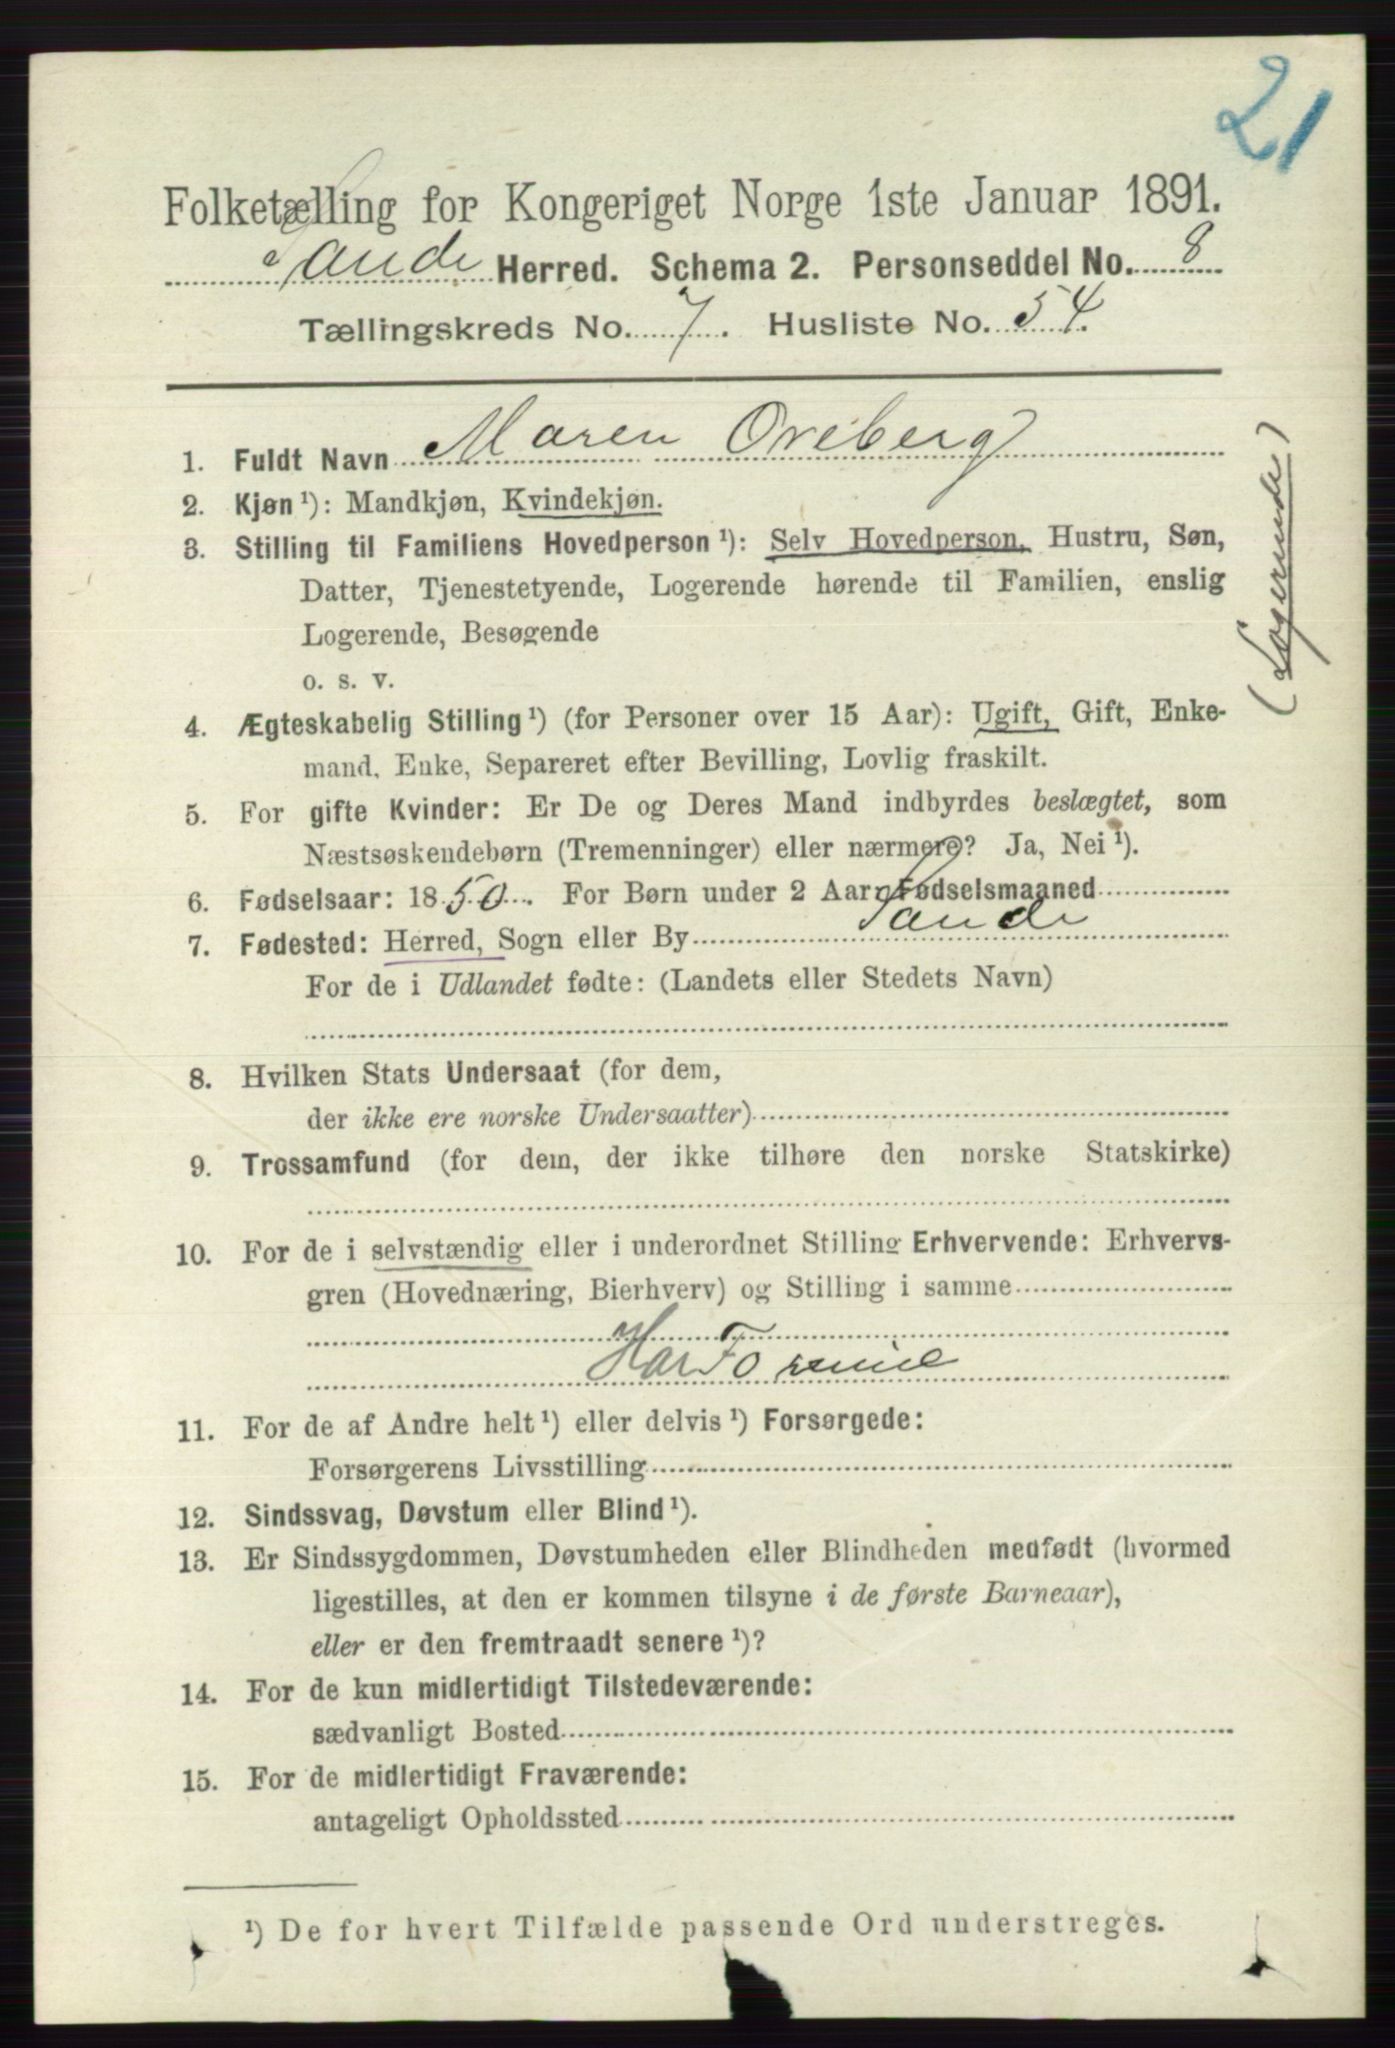 21
Folketælling for Kongeriget Norge 1ste Januar 1891.
Sande Herred. Schema 2. Personseddel No. 8
Tællingskreds No. 7. Husliste No. 54.
1. Fuldt Navn Maren Oreberg
2. Kjøn ¹): Mandkjøn, Kvindekjøn.
3. Stilling til Familiens Hovedperson ¹): Selv Hovedperson, Hustru, Søn,
Datter, Tjenestetyende, Logerende hørende til Familien, enslig
Logerende, Besøgende
o. s. v.
(Logerende)
4. Ægteskabelig Stilling ¹) (for Personer over 15 Aar): Ugift, Gift, Enke-
mand, Enke, Separeret efter Bevilling, Lovlig fraskilt.
5. For gifte Kvinder: Er De og Deres Mand indbyrdes beslægtet, som
Næstsøskendebørn (Tremenninger) eller nærmere? Ja, Nei ¹).
6. Fødselsaar: 1850. For Børn under 2 Aar: Fødselsmaaned
7. Fødested: Herred, Sogn eller By Sande
For de i Udlandet fødte: (Landets eller Stedets Navn)
8. Hvilken Stats Undersaat (for dem,
der ikke ere norske Undersaatter)
9. Trossamfund (for dem, der ikke tilhøre den norske Statskirke)
10. For de i selvstændig eller i underordnet Stilling Erhvervende: Erhvervs-
gren (Hovednæring, Bierhverv) og Stilling i samme
Har Formue
11. For de af Andre helt ¹) eller delvis ¹) Forsørgede:
Forsørgerens Livsstilling
12. Sindssvag, Døvstum eller Blind ¹).
13. Er Sindssygdommen, Døvstumheden eller Blindheden medfødt (hvormed
ligestilles, at den er kommen tilsyne i de første Barneaar),
eller er den fremtraadt senere ¹)?
14. For de kun midlertidigt Tilstedeværende:
sædvanligt Bosted
15. For de midlertidigt Fraværende:
antageligt Opholdssted
¹) De for hvert Tilfælde passende Ord understreges.